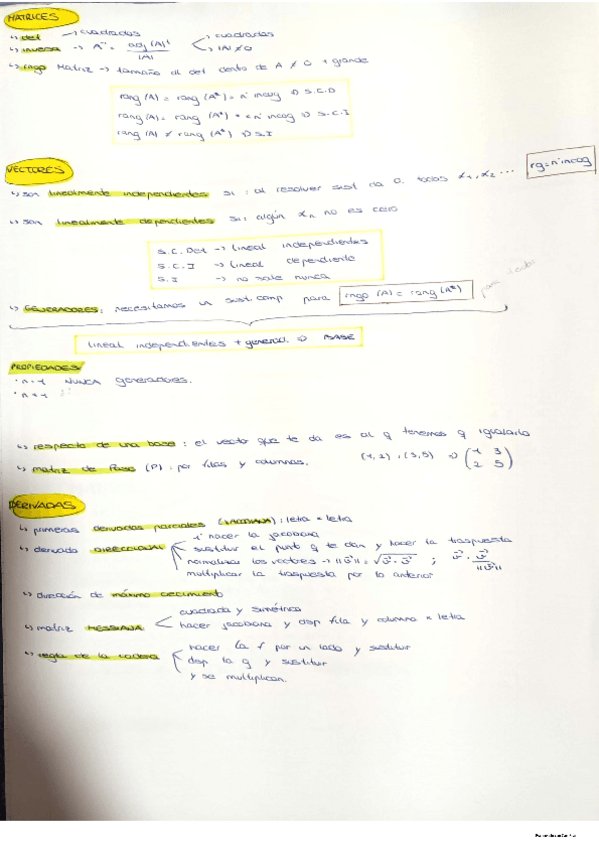 MATRICES
↳ det → cuadradas
↳ inversa → A⁻¹ = adj (A)ᵗ / |A| < cuadradas
|A| ≠ 0
↳ rngo Matriz → tamaño del det dento de A ≠ 0 + grande
rang (A) = rang (A*) = nº incog ⇒ S.C.D
rang (A) = rang (A*) < nº incog ⇒ S.C.I
rang (A) ≠ rang (A*) ⇒ S.I
VECTORES
↳ son linealmente independientes si : al resolver sist na 0. todos x₁, x₂ ...
rg = nº incog
↳ son linealmente dependientes si : algún xn no es cero
S.C. Det → lineal independientes
S.C.I → lineal dependiente
S.I → no sale nunca
↳ GENERADORES: necesitamos un sist. comp para rngo (A) = rang (A*)
lineal independientes + generad. ⇒ BASE
PROPIEDADES
· n-1 NUNCA generadores.
· n+1
↳ respecto de una base : el vector que te da es al q tenemos q igualarlo
↳ matriz de Paso (P) : por filas y columnas. (1,2), (3,5) ⇒ (1 3
2 5)
DERIVADAS
↳ primeras derivadas parciales (JACOBIANA) : letra x letra
↳ derivada DIRECCIONAL
hacer la jacobiana
sustituir el punto q te dan y hacer la traspuesta
normalizar los vectores → ||v⃗|| = √v⃗ · v⃗ ; v⃗ · v⃗ / ||v⃗||
multiplicar la traspuesta por lo anterior
↳ dirección de máximo crecimiento
↳ matriz HESSIANA < cuadrada y simétrica
hacer jacobiana y dsp fila y columna x letra
↳ regla de la cadena
hacer la f por un lado y sustituir
dsp la g y sustituir
y se multiplican.